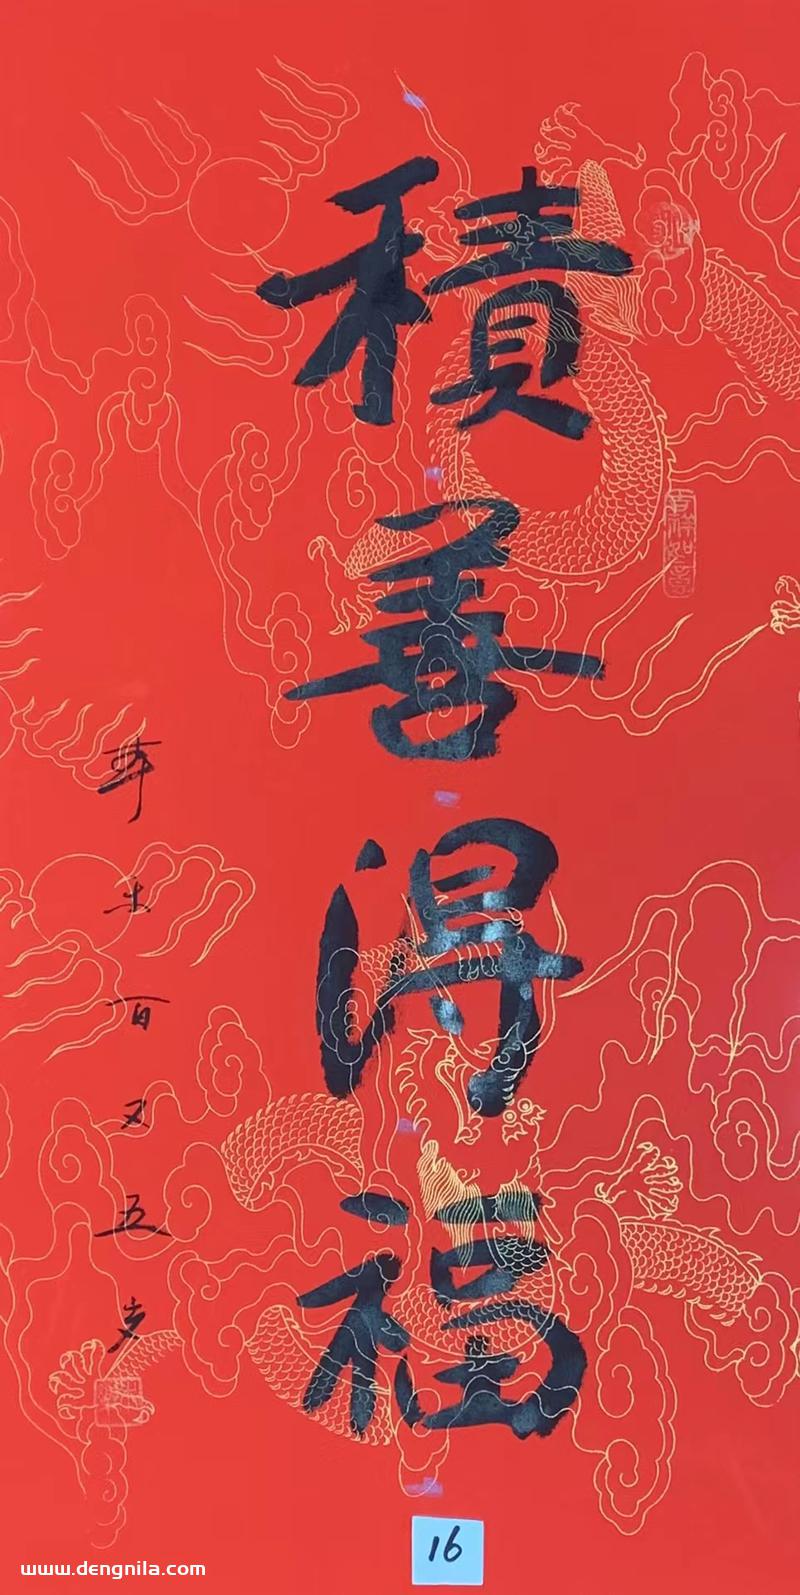 積善得福
吉祥如意
百又五岁
16
www.dengnila.com